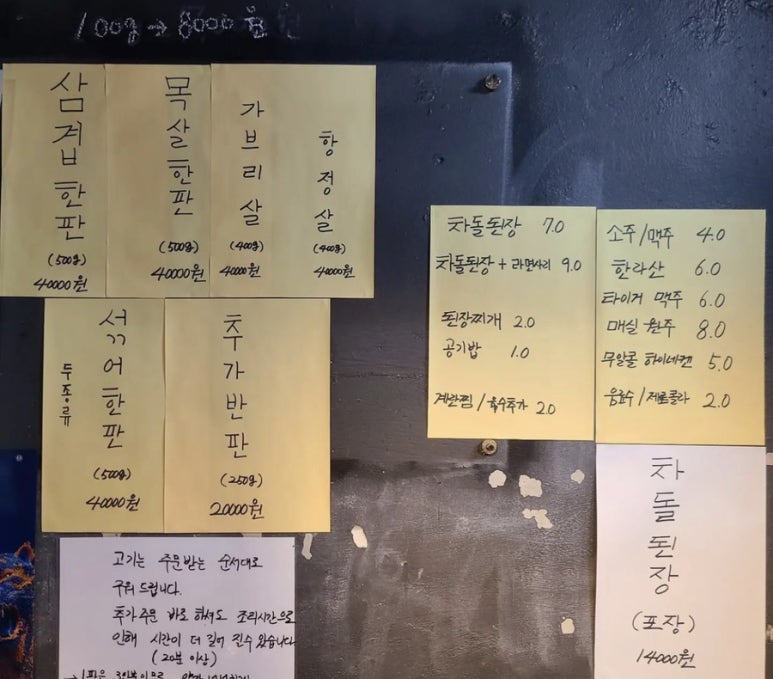 100g → 8000원
삼겹한판
(500g)
40000원
목살한판
(500g)
40000원
가브리살
(400g)
40000원
항정살
(400g)
40000원
두종류
섞어한판
(500g)
40000원
추가반판
(250g)
20000원
차돌된장 7.0
차돌된장 + 라면사리 9.0
된장찌개 2.0
공기밥 1.0
계란찜 / 육수추가 2.0
소주/맥주 4.0
한라산 6.0
타이거 맥주 6.0
매실 원주 8.0
무알콜 하이네켄 5.0
음료수/제로콜라 2.0
차돌된장
(포장)
14000원
고기는 주문받는 순서대로
구워 드립니다.
추가주문 바로 하셔도 조리시간으로
인해 시간이 더 길어 진수 있습니다
(20분 이상)
→ 1판은